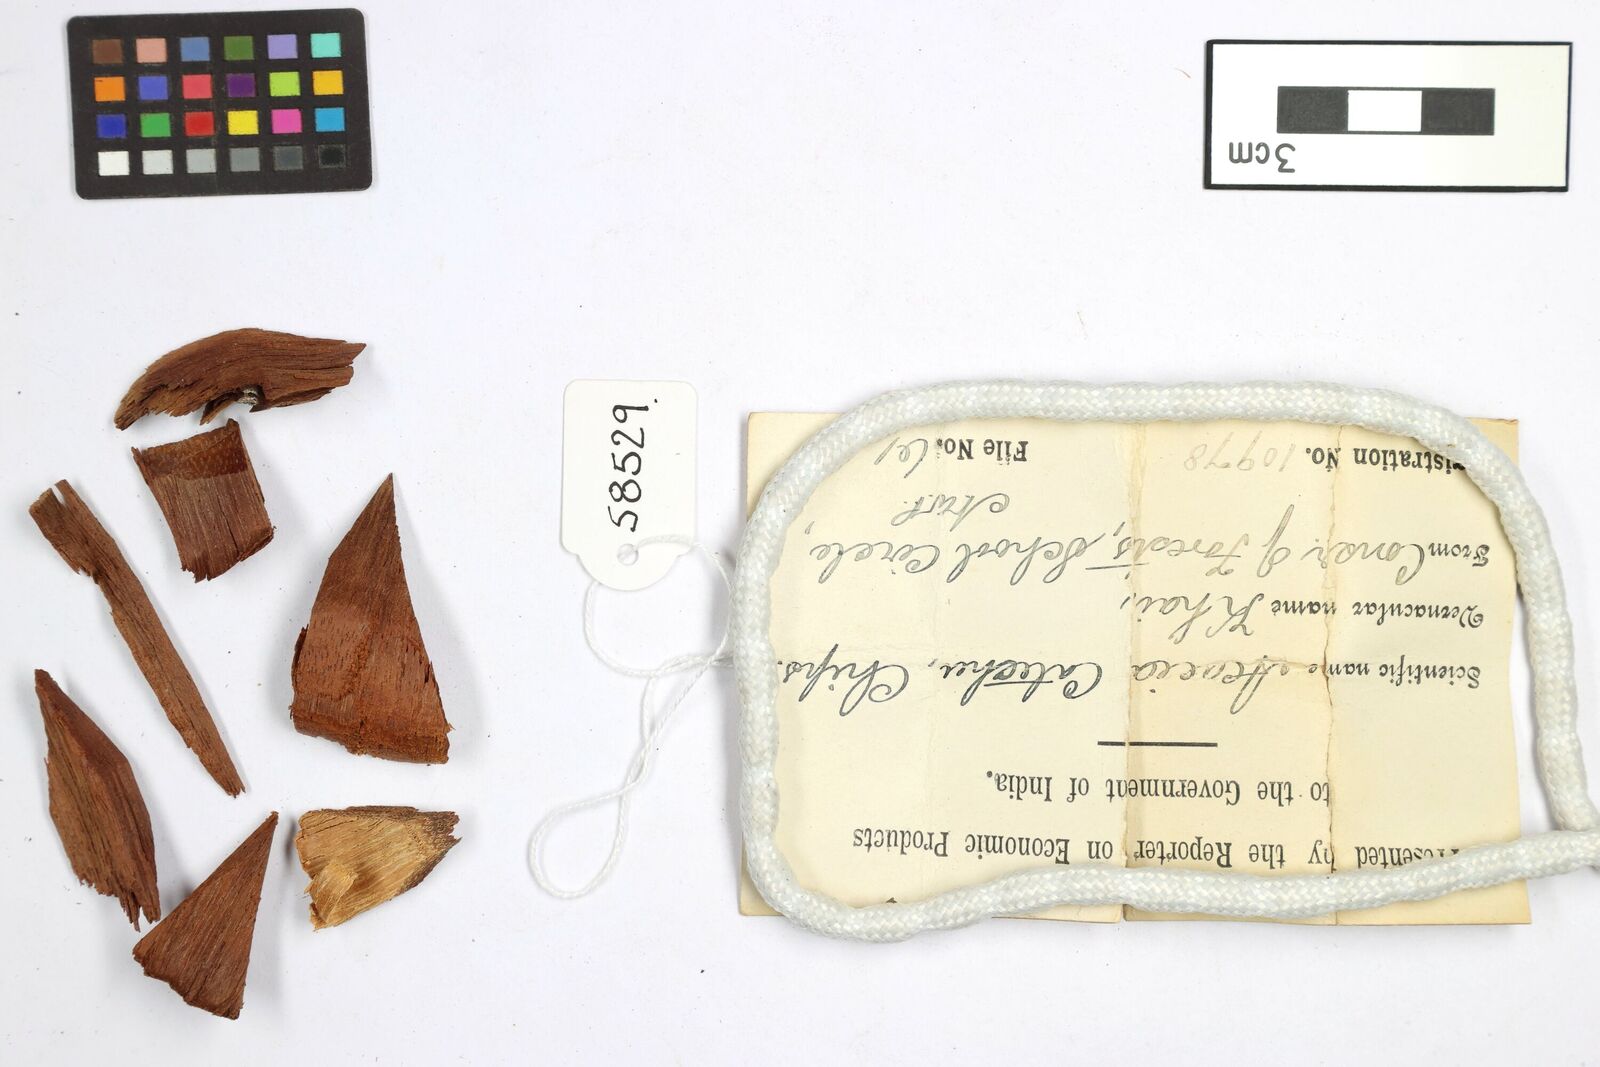 3cm
58529.
Presented by the Reporter on Economic Products
to the Government of India.
Scientific name Acacia Catechu, Chips.
Vernacular name Khair,
From Conser of Forests, School Circle,
File No.
istration No. 10978